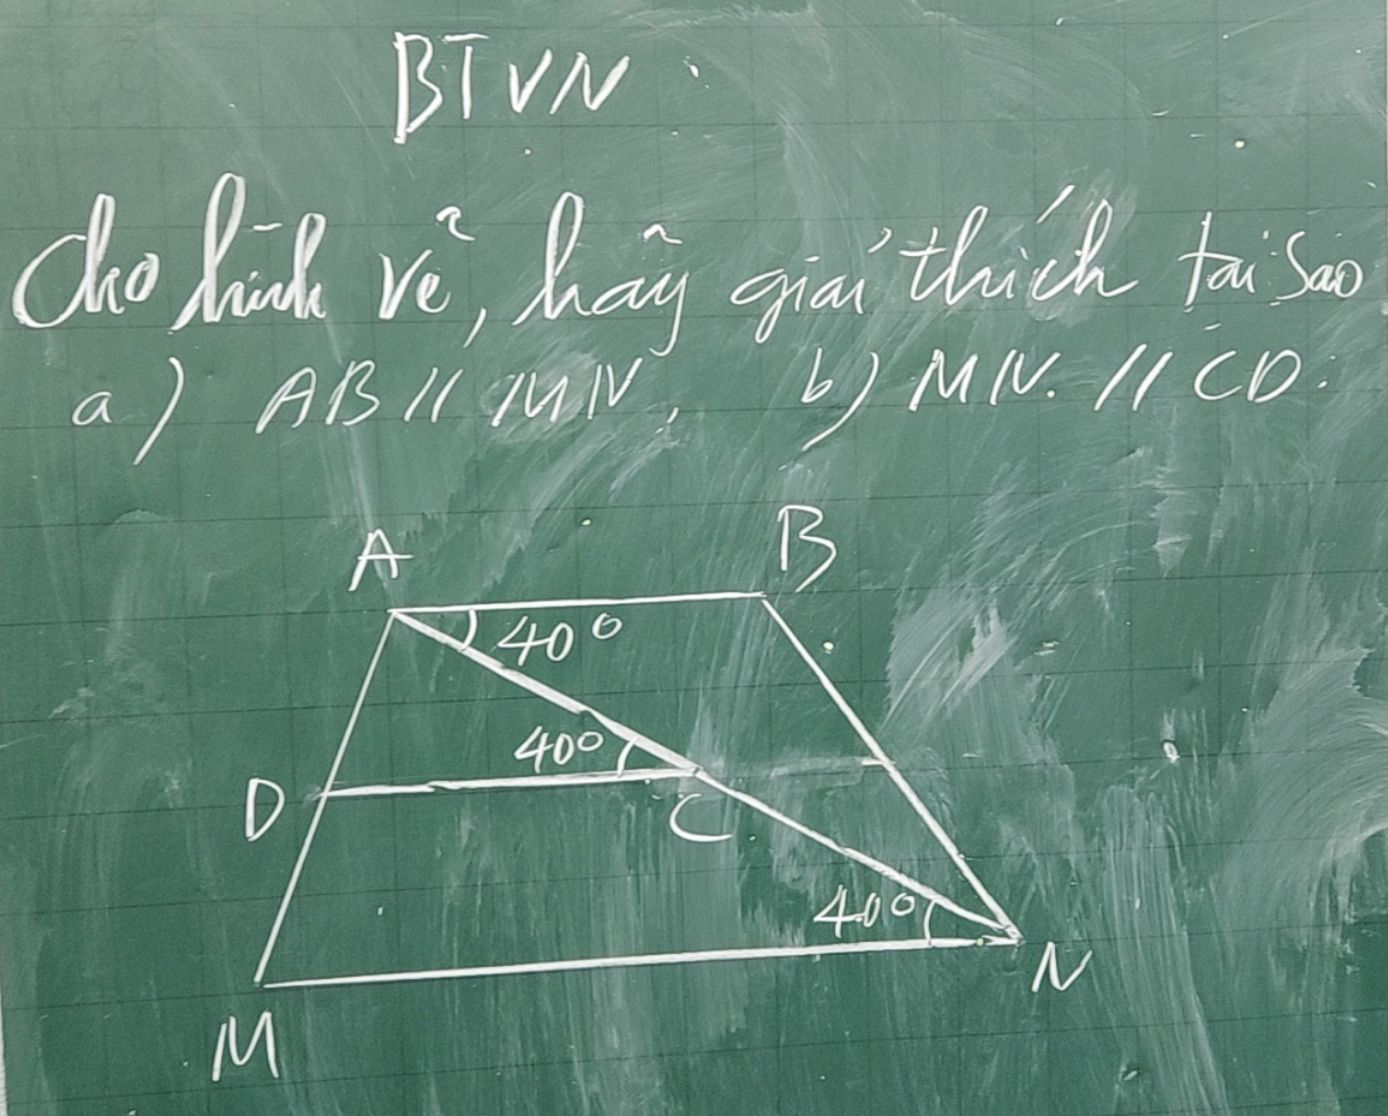 BTVN
Cho hình vẽ, hãy giải thích tại sao
a) AB // MN, b) MN. // CD.
A
B
40°
40°
D
C
40°
N
M